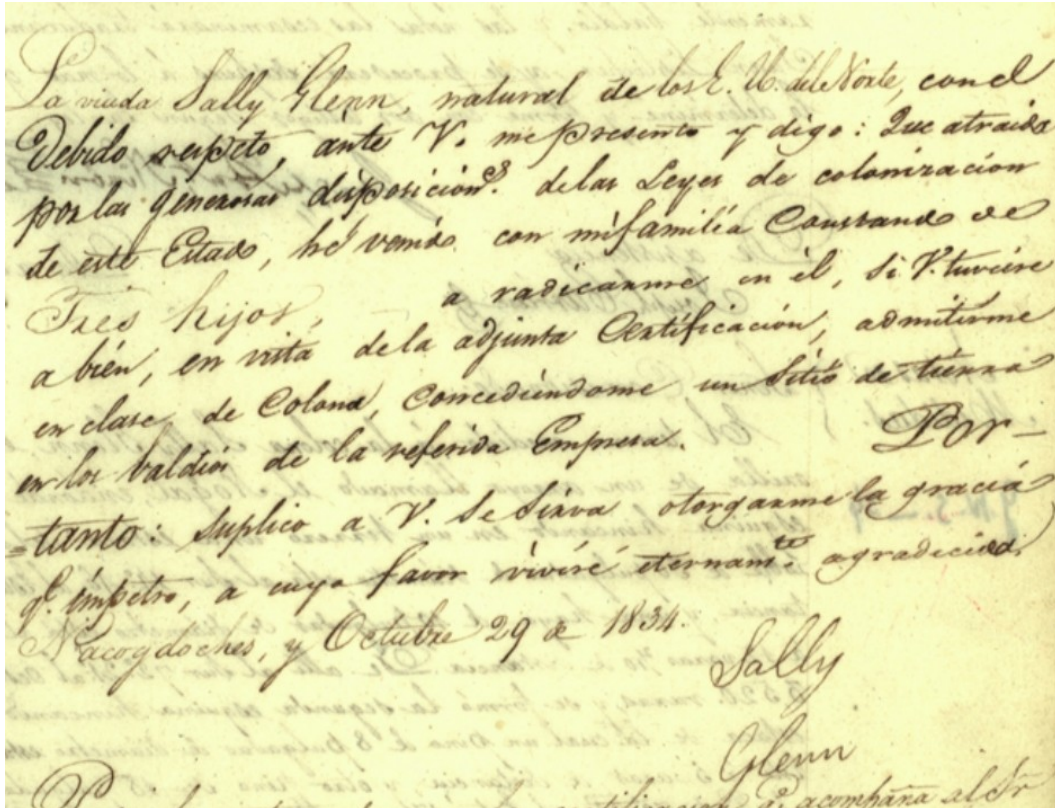 La viuda Sally Glenn, natural de los E. U. del Norte, con el
debido respeto, ante V. me presento y digo: Que atraida
por las generosas disposicion.s de las Leyes de colonizacion
de este Estado, hé venido con mi familia Constando de
Tres hijos, a radicarme en él, si V. tuviere
a bién, en vista de la adjunta Certificación, admitirme
en clase de Colona, Concediéndome un Sitio de tierra
en los baldios de la referida Empresa. Por-
=tanto: Suplico a V. se sirva otorgarme la gracia
q.e impetro, a cuyo favor viviré eternam.te agradecida.
Nacogdoches, y Octubre 29 de 1834.
Sally
Glenn
acompaña al Sr